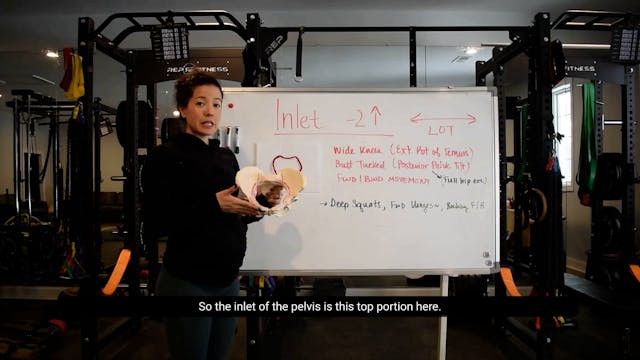 REP
REP FITNESS
REP FITNESS
Inlet -2 ↑
LOT
Wide Knees (Ext. Rot of Femurs)
Butt Tucked (Posterior Pelvic Tilt)
FWD / BWD MOVEMENT (Full hip ext)
→ Deep Squats, Fwd Lunges, Rocking F/B
So the inlet of the pelvis is this top portion here.